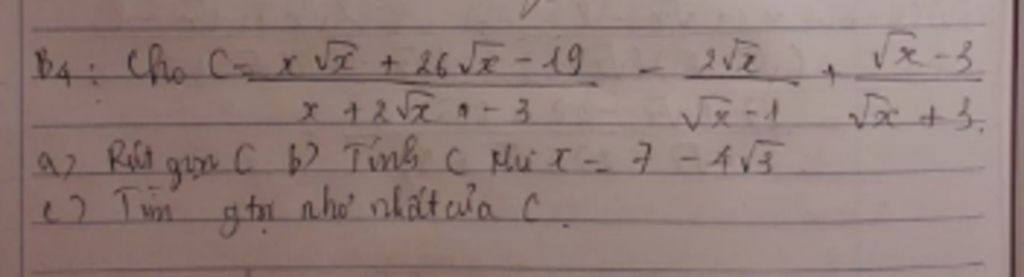 B4: Cho C = x√x + 26√x - 19 / x + 2√x - 3 - 2√x / √x - 1 + √x - 3 / √x + 3.
a) Rút gọn C b) Tính C khi x = 7 - 4√3
c) Tìm gtrị nhỏ nhất của C.